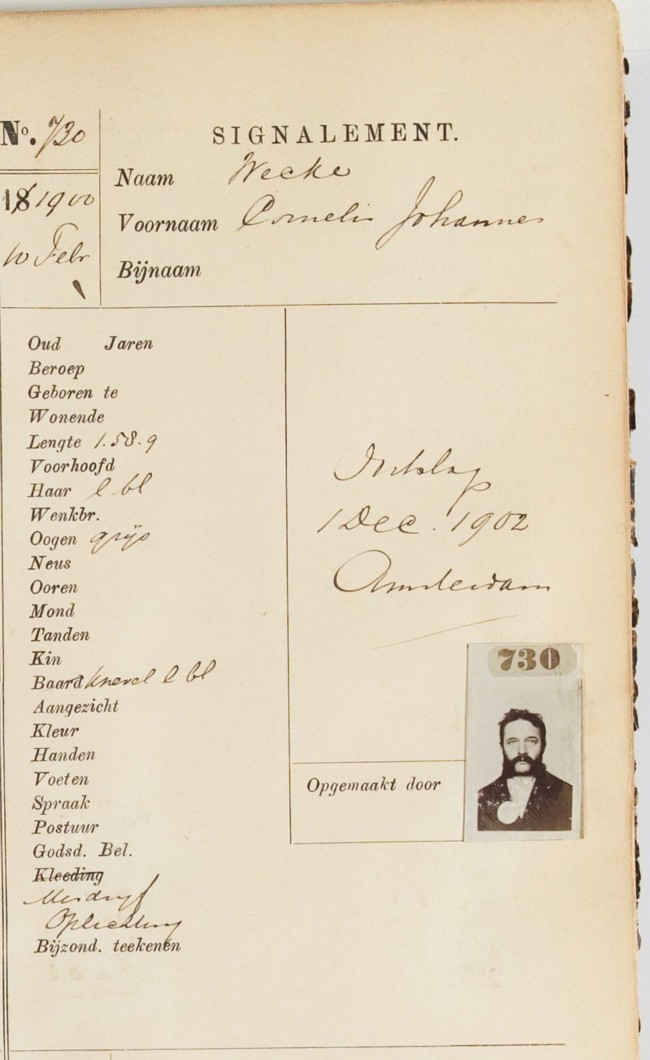 No. 730
SIGNALEMENT.
18 1900
10 Febr
Naam Wecke
Voornaam Cornelis Johannes
Bijnaam
Oud Jaren
Beroep
Geboren te
Wonende
Lengte 1.58.9
Voorhoofd
Haar l bl
Wenkbr.
Oogen grijs
Neus
Ooren
Mond
Tanden
Kin
Baard knevel l bl
Aangezicht
Kleur
Handen
Voeten
Spraak
Postuur
Godsd. Bel.
Kleeding
Misdrijf
Oplichting
Bijzond. teekenen
Ontslag
1 Dec. 1902
Amsterdam
730
Opgemaakt door